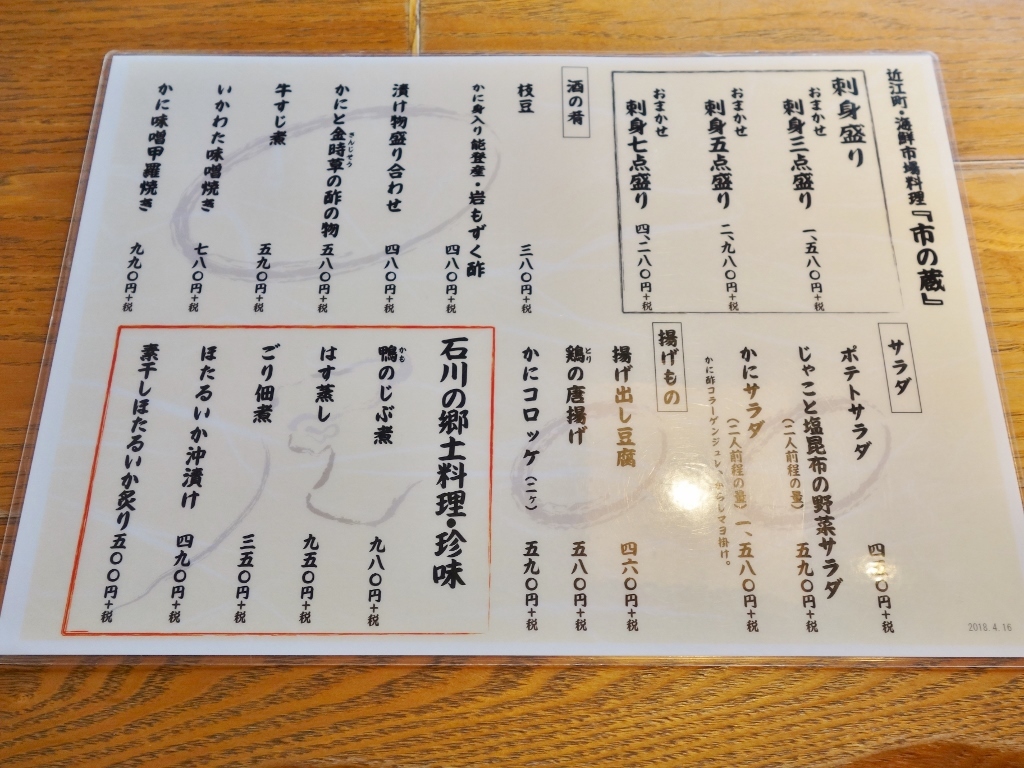 近江町・海鮮市場料理『市の蔵』
刺身盛り
おまかせ
刺身三点盛り 一、五八〇円+税
おまかせ
刺身五点盛り 二、九八〇円+税
おまかせ
刺身七点盛り 四、二八〇円+税
酒の肴
枝豆 三八〇円+税
かに身入り能登産・岩もずく酢 四八〇円+税
漬け物盛り合わせ 四八〇円+税
かにと金時草の酢の物 五八〇円+税
きんじそう
牛すじ煮 五九〇円+税
いかわた味噌焼き 七八〇円+税
かに味噌甲羅焼き 九九〇円+税
サラダ
ポテトサラダ 円+税
じゃこと塩昆布の野菜サラダ
(二人前程の量) 五九〇円+税
かにサラダ (二人前程の量) 一、五八〇円+税
かに酢コラーゲンジュレ、からしマヨ掛け。
揚げもの
揚げ出し豆腐 四六〇円+税
鶏の唐揚げ 五八〇円+税
とり
かにコロッケ(二ヶ) 五九〇円+税
石川の郷土料理・珍味
鴨のじぶ煮 九八〇円+税
かも
はす蒸し 九五〇円+税
ごり佃煮 三五〇円+税
ほたるいか沖漬け 四九〇円+税
素干しほたるいか炙り 五〇〇円+税
2018.4.16